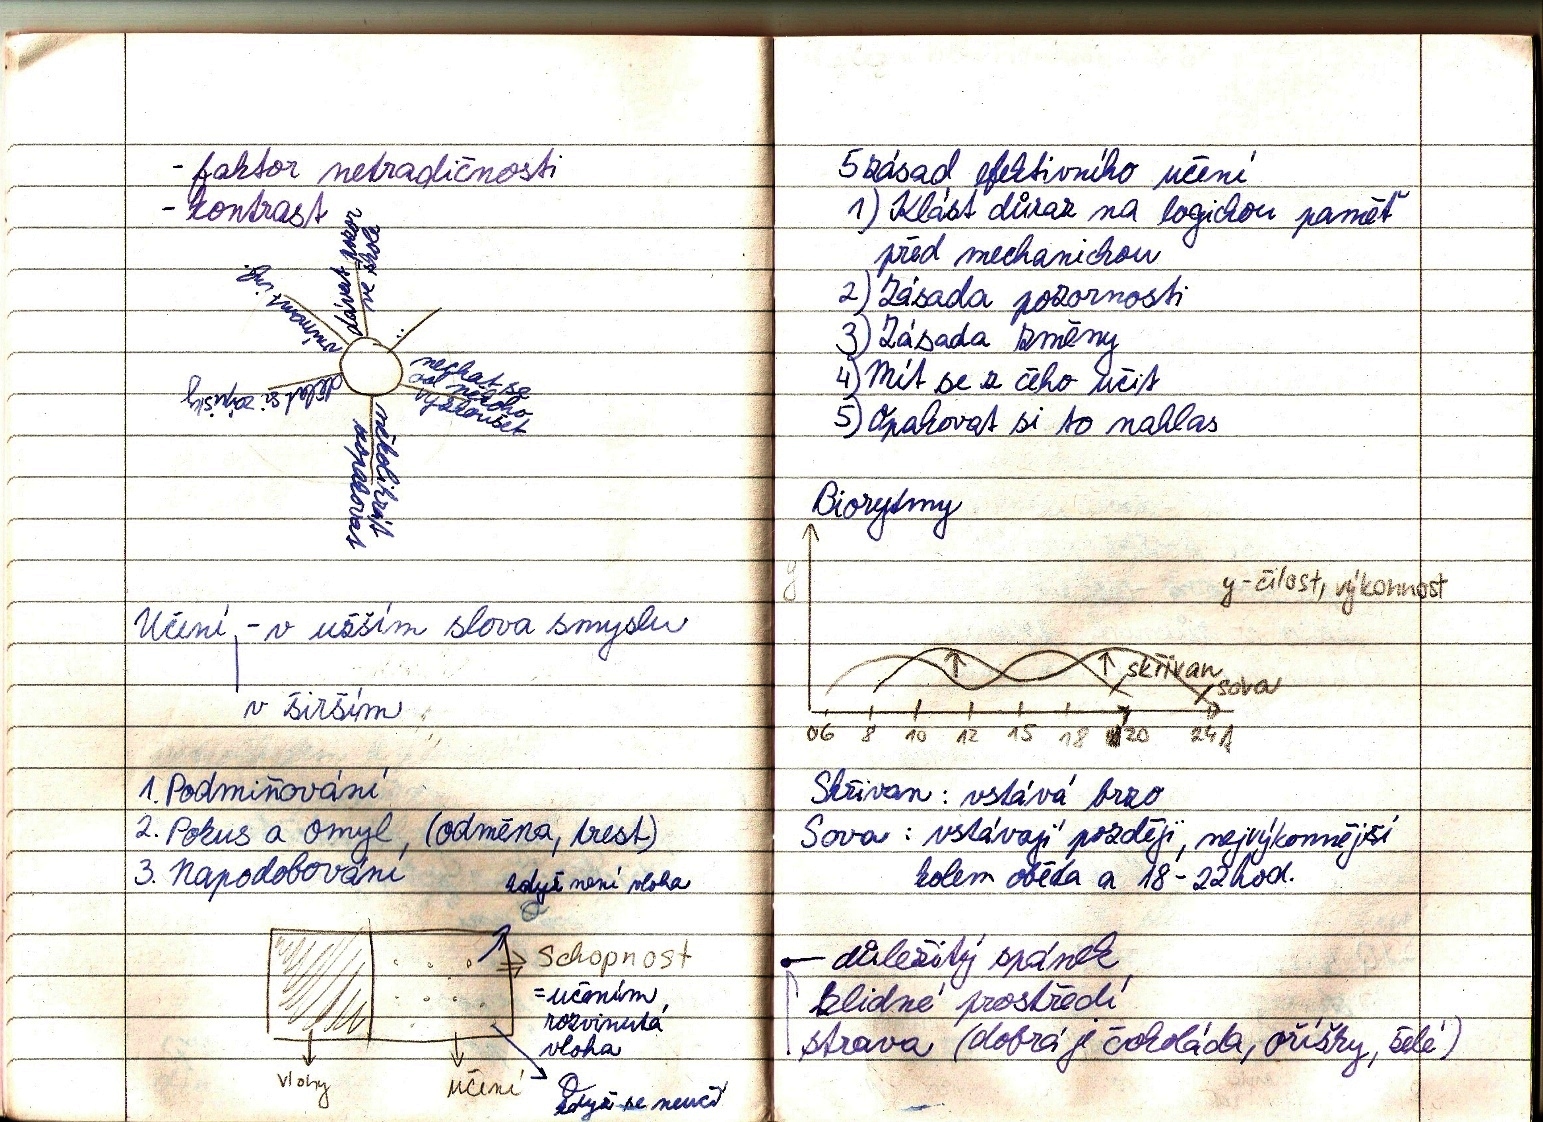 - faktor netradičnosti
- kontrast
dávat pozor
ve škole
vnímat inf.
dělat si zápisky
nechat se
od někoho
vyzkoušet
několikrát
zopakovat
Učení - v užším slova smyslu
v širším
1. Podmiňování
2. Pokus a omyl, (odměna, trest)
3. Napodobování
když není vloha
Schopnost
= učením
rozvinutá
vloha
vlohy
učení
když se neučí
5 zásad efektivního učení
1) Klást důraz na logickou paměť
před mechanickou
2) Zásada pozornosti
3) Zásada změny
4) Mít se z čeho učit
5) Opakovat si to nahlas
Biorytmy
y
y - čilost, výkonnost
skřivan
sova
06 8 10 12 15 18 20 24h
Skřivan: vstává brzo
Sova: vstávají později, nejvýkonnější
kolem oběda a 18 - 22 hod.
důležitý spánek
klidné prostředí
strava (dobrá je čokoláda, oříšky, želé)